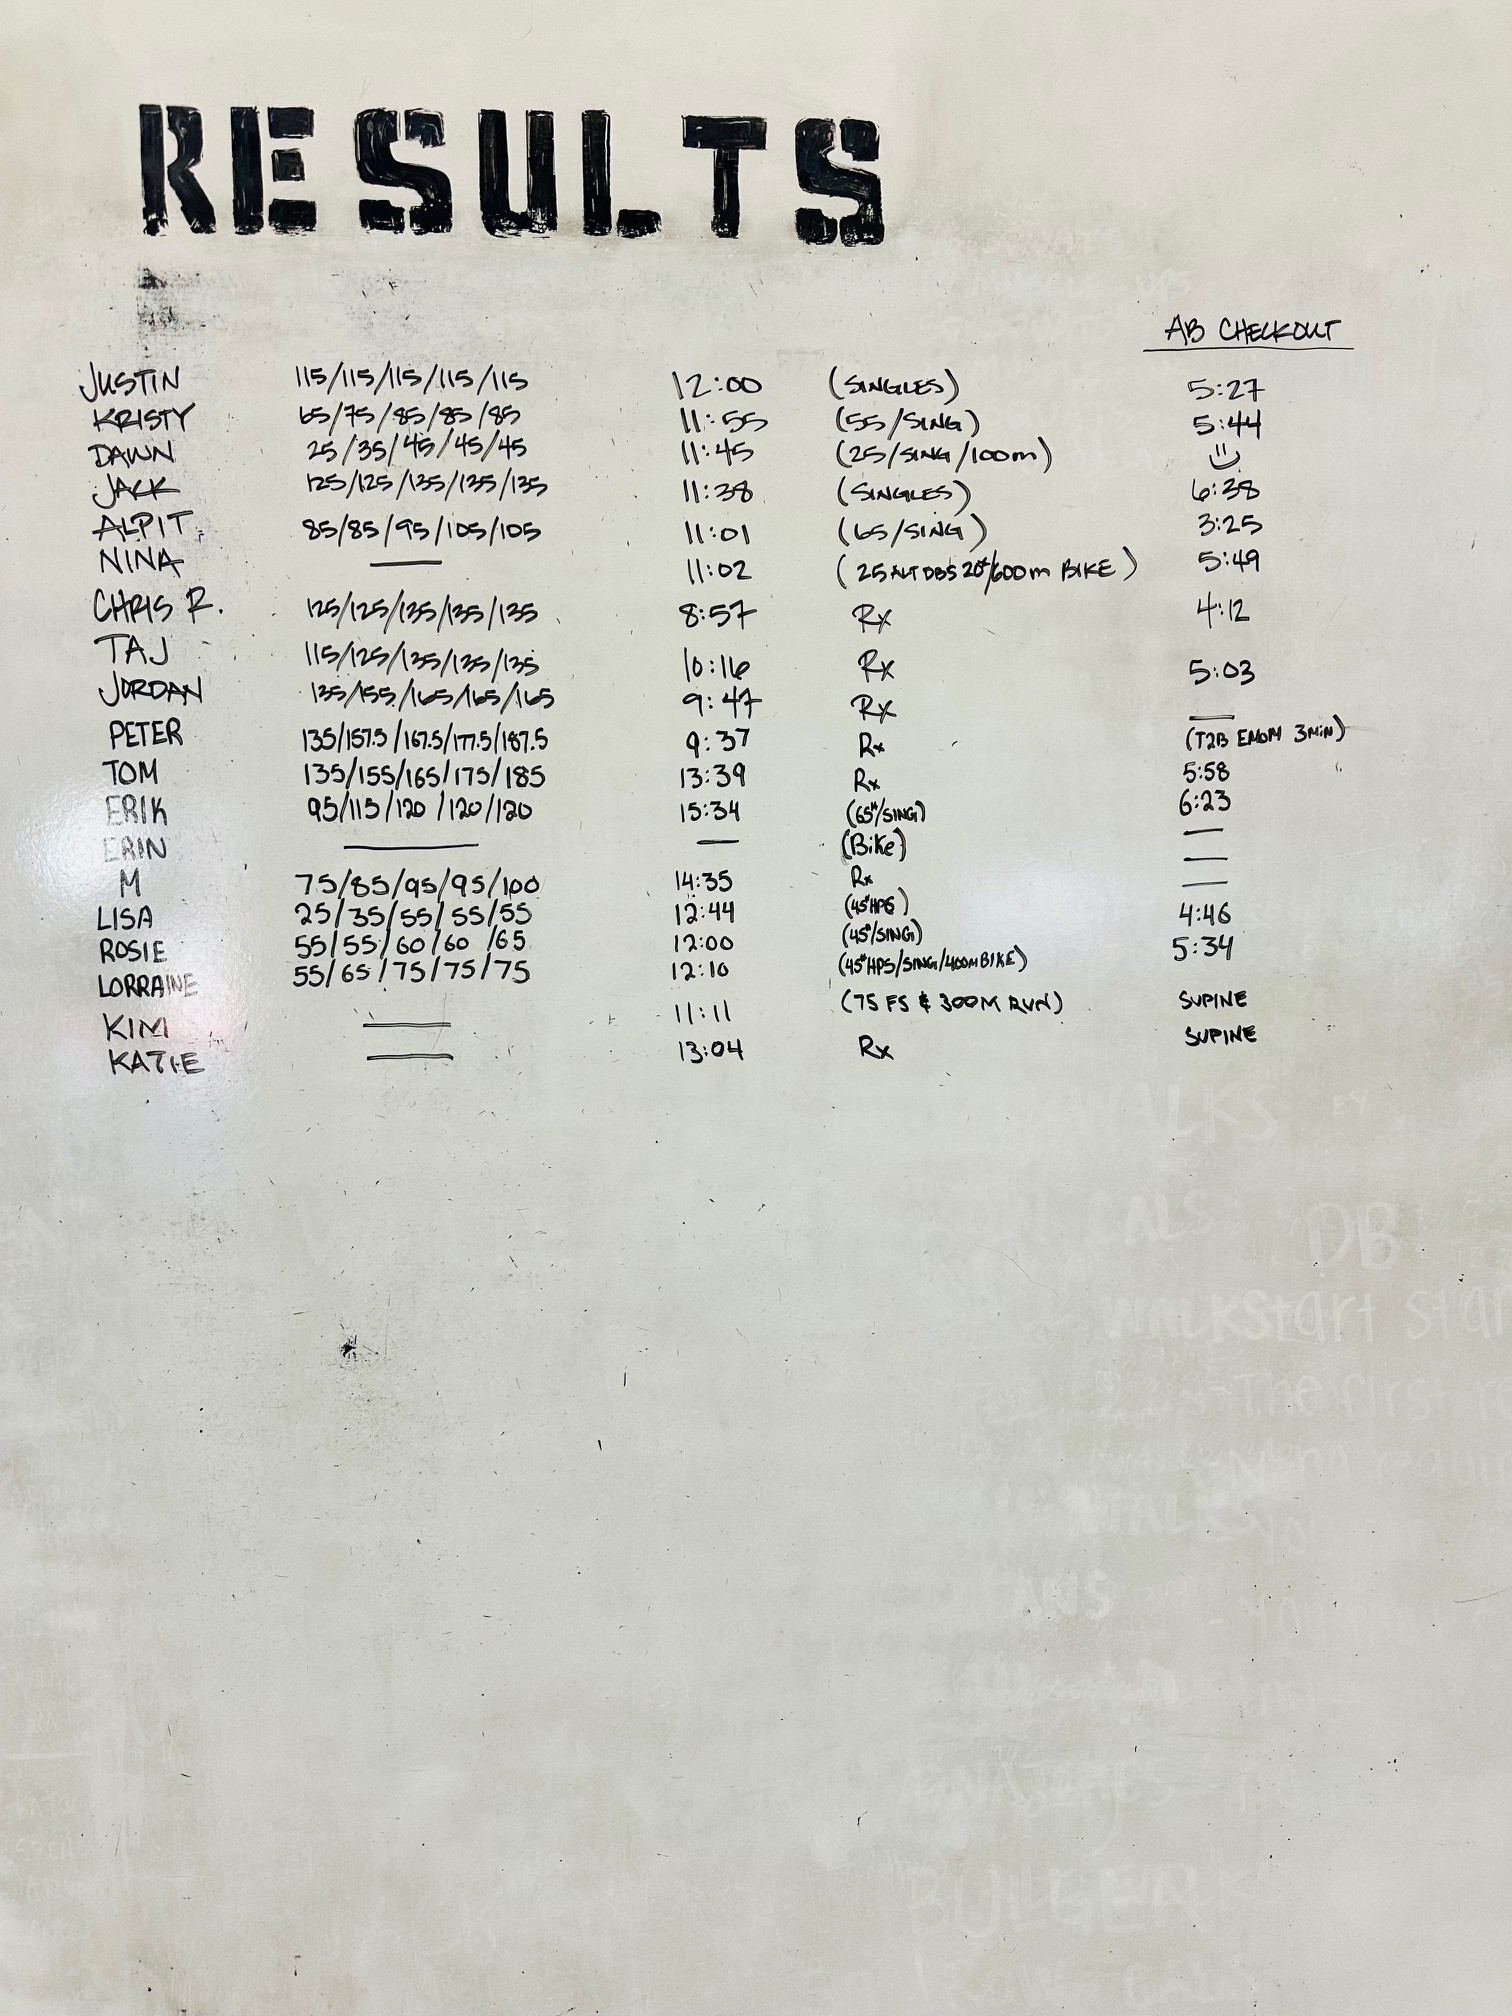 RESULTS
AB CHECKOUT
JUSTIN 115/115/115/115/115 12:00 (SINGLES) 5:27
KRISTY 65/75/85/85/85 11:55 (55/SING) 5:44
DAWN 25/35/45/45/45 11:45 (25/SING/100m)
JACK 125/125/135/135/135 11:38 (SINGLES) 6:38
ALPIT 85/85/95/105/105 11:01 (65/SING) 3:25
NINA — 11:02 (25 ALT DBS 20#/600m BIKE) 5:49
CHRIS R. 125/125/135/135/135 8:57 Rx 4:12
TAJ 115/125/135/135/135 10:16 Rx 5:03
JORDAN 135/155/165/165/165 9:47 Rx —
PETER 135/157.5/167.5/177.5/187.5 9:37 Rx (T2B EMOM 3MIN)
TOM 135/155/165/175/185 13:39 Rx 5:58
ERIK 95/115/120/120/120 15:34 (65#/SING) 6:23
ERIN — — (Bike) —
M 75/85/95/95/100 14:35 Rx —
LISA 25/35/55/55/55 12:44 (45#HPS) —
ROSIE 55/55/60/60/65 12:00 (45#/SING) 4:46
LORRAINE 55/65/75/75/75 12:10 (45#HPS/SING/400MBIKE) 5:34
KIM — 11:11 (75 FS & 300M RUN) SUPINE
KATIE — 13:04 Rx SUPINE
WALKS
CALS
DB
WALKStart
The first
WALK
BULGE